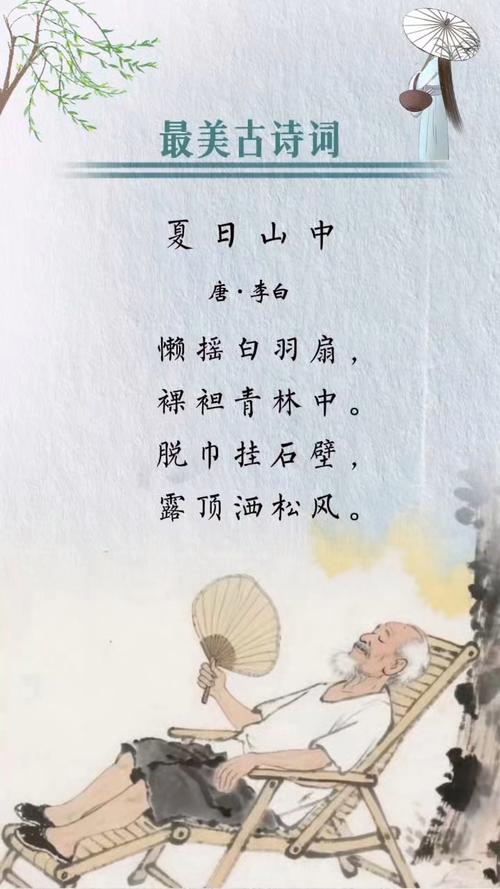 最美古诗词
夏日山中
唐·李白
懒摇白羽扇，
裸袒青林中。
脱巾挂石壁，
露顶洒松风。